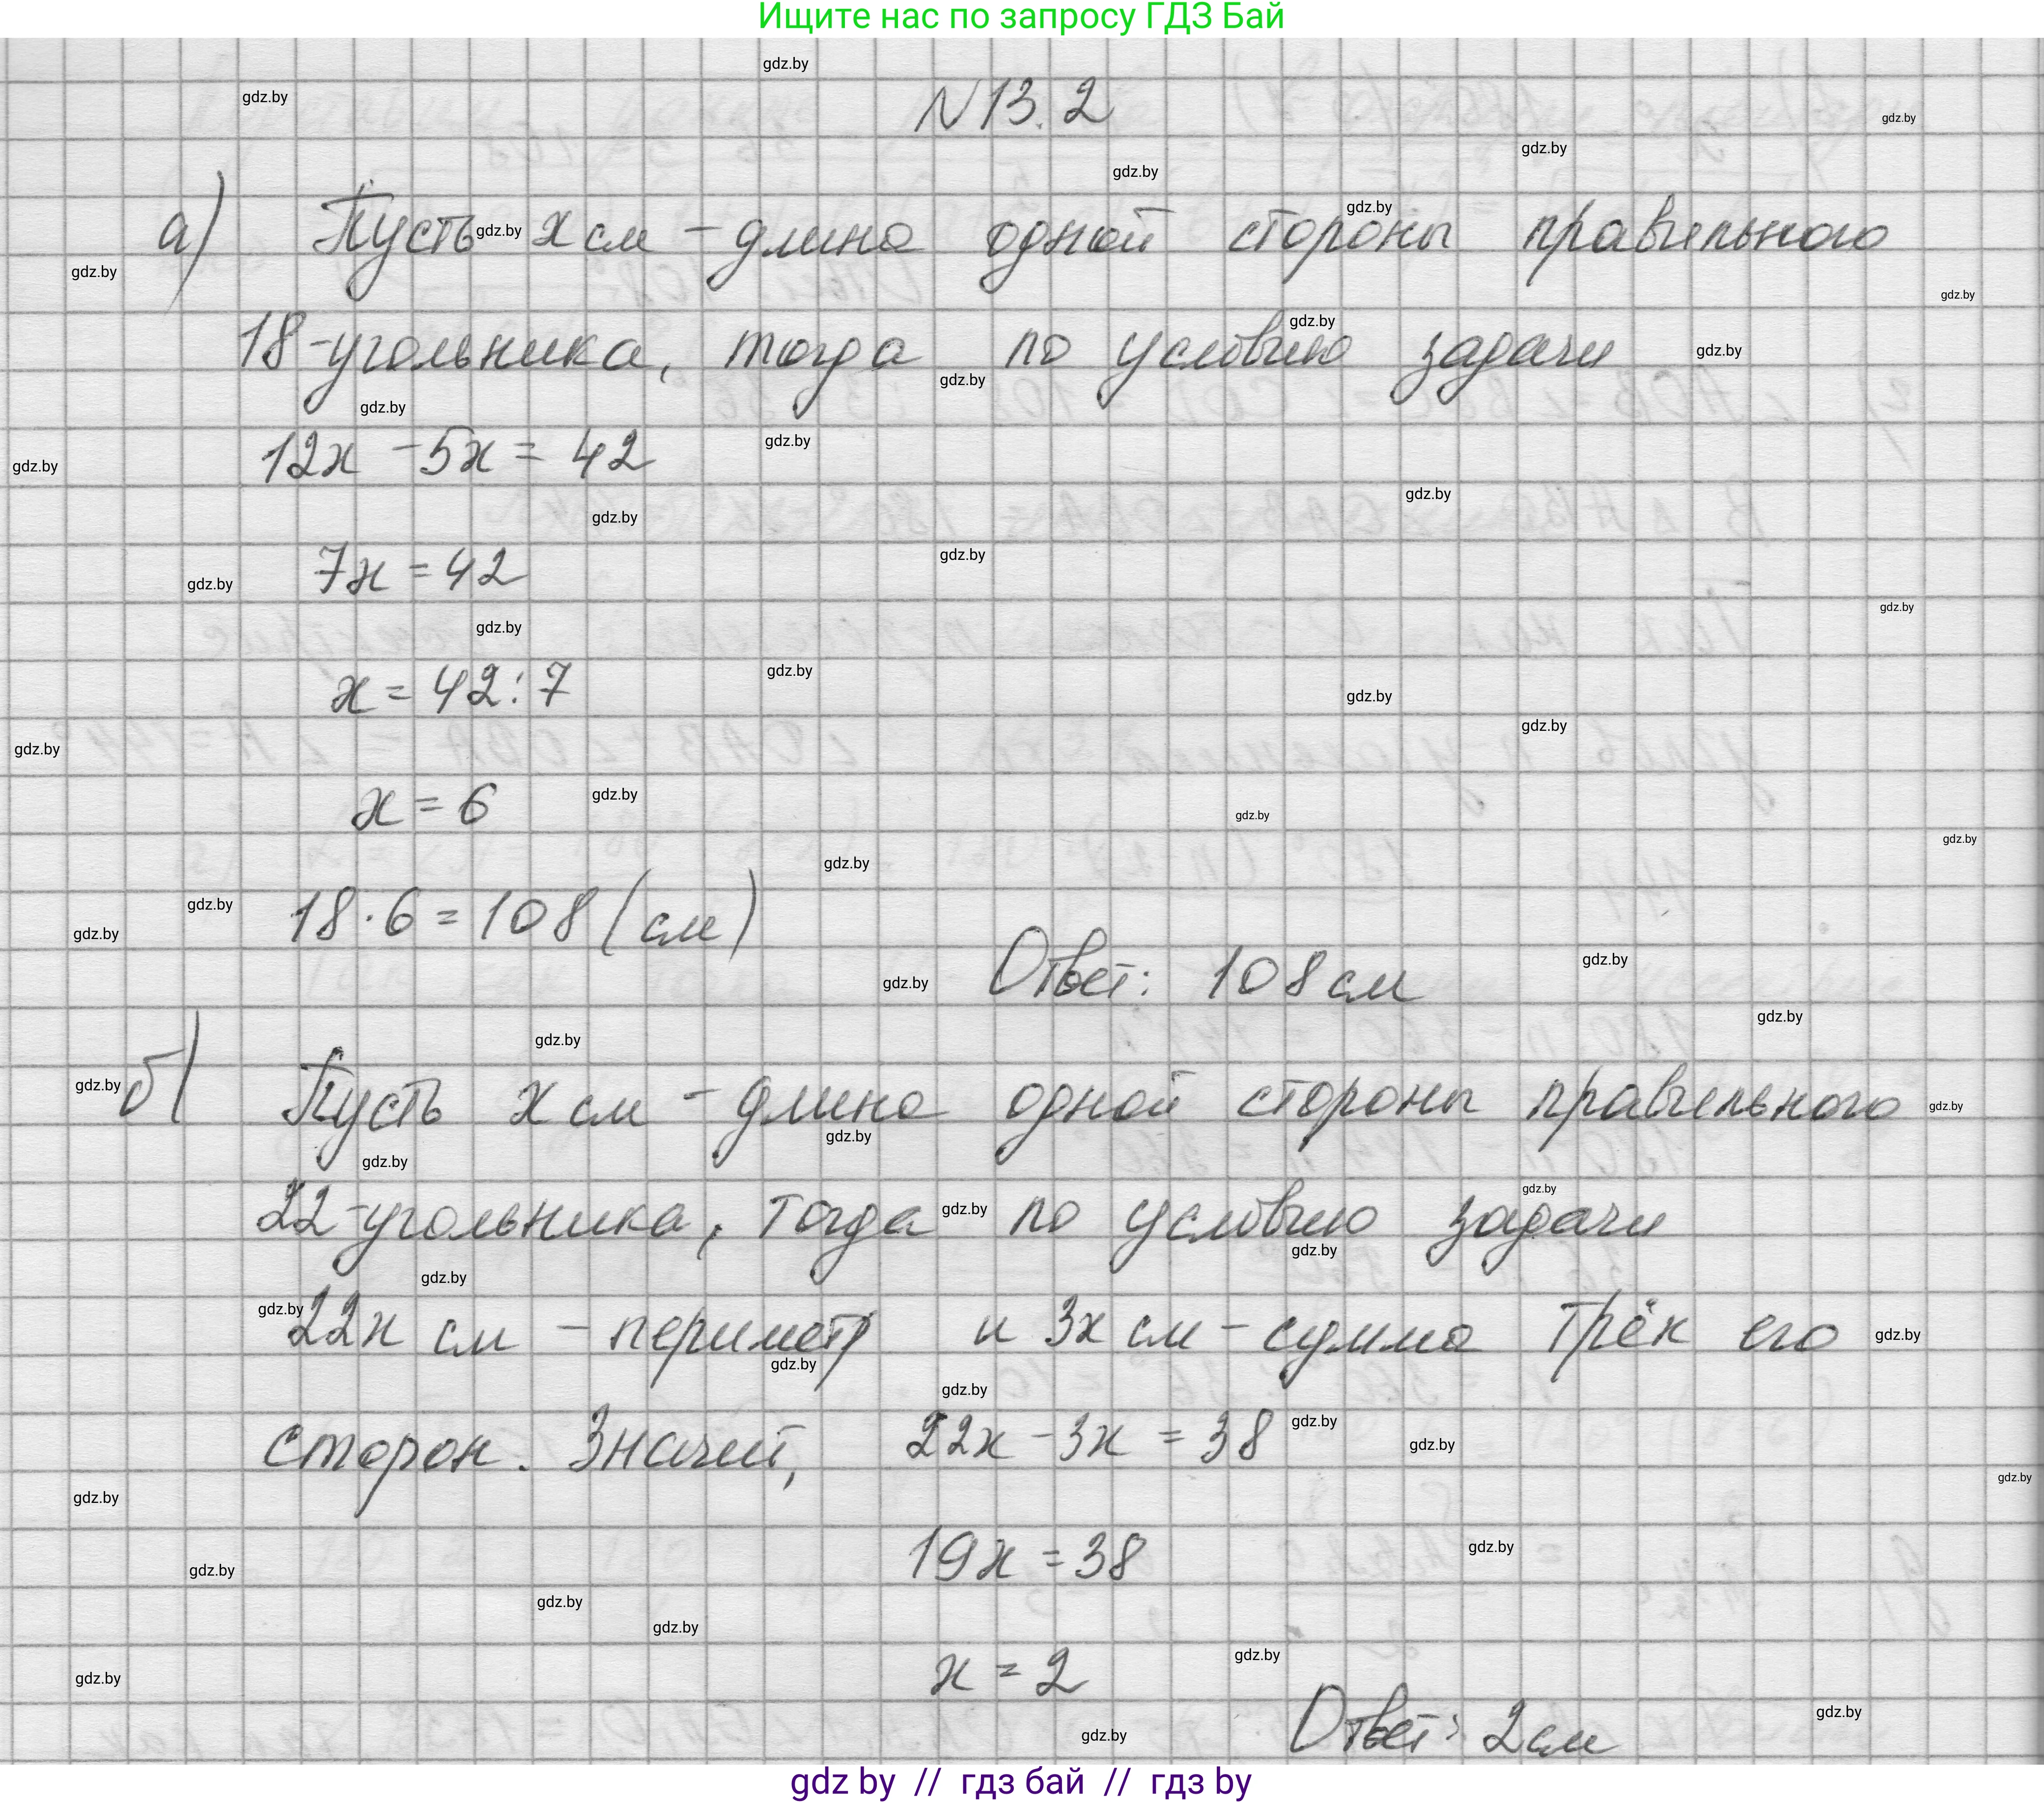 Ищите нас по запросу ГДЗ Бай
N13.2
а) Пусть x см - длина одной стороны правильного
18-угольника, тогда по условию задачи
12x - 5x = 42
7x = 42
x = 42 : 7
x = 6
18 · 6 = 108 (см)
Ответ: 108 см
б) Пусть x см - длина одной стороны правильного
22-угольника, тогда по условию задачи
22x см - периметр и 3x см - сумма трёх его
сторон. Значит, 22x - 3x = 38
19x = 38
x = 2
Ответ: 2 см
gdz by // гдз бай // гдз by